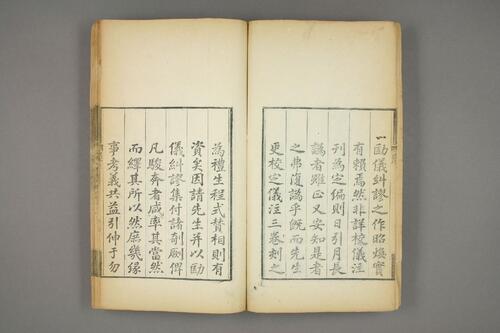 一勷儀糾謬之作昭煥實
有賴焉然非詳校儀注
刊為定編則日引月長
譌者雖正又安知是者
之弗復譌乎旣而先生
更校定儀注三卷刻之
為禮生程式贊相則有
資矣因請先生并以勷
儀糾謬集付諸剞劂俾
凡駿奔者咸率其當然
而繹其所以然庶幾緣
事考義共益引伸于勿